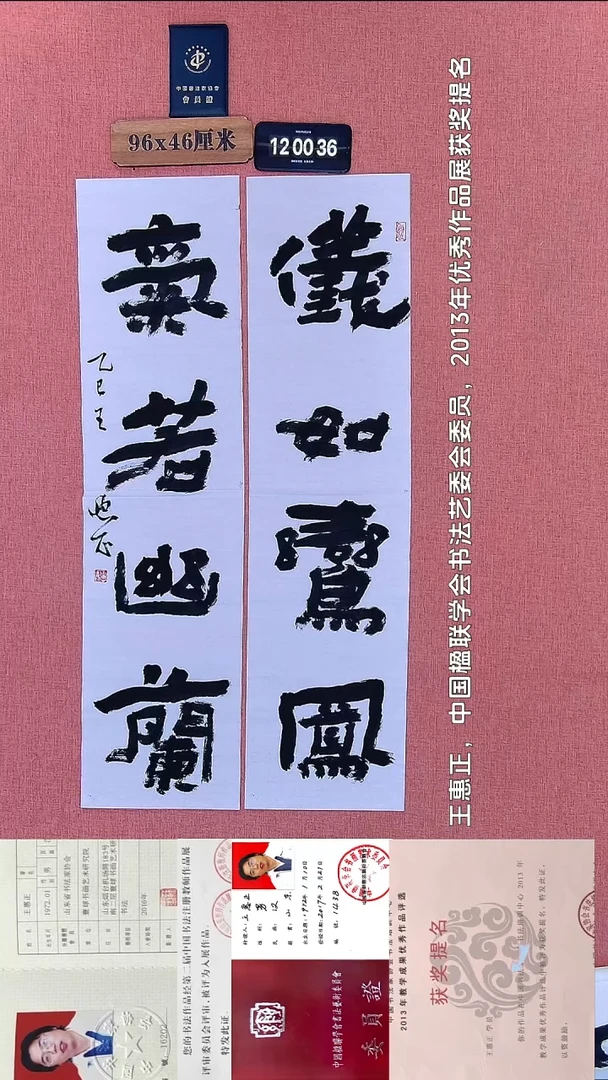 中国楹联学会书法艺委会
會員證
96x46厘米
12 00 36
儀如鸞鳳
氣若幽蘭
乙巳王惠正
王惠正，中国楹联学会书法艺委会委员，2013年优秀作品展获奖提名
姓名 王惠正
1972.01
男
山东省书法家协会
书法
2016年
您的书法作品经第二届中国书法注册教师作品展
评审委员会评审，被评为入展作品。
特发此证。
王惠正
男
汉
山东
1238
中國楹聯學會書法藝術委員會
委員證
2013年教学成果优秀作品评选
获奖提名
王惠正
特发此证，
以资鼓励。